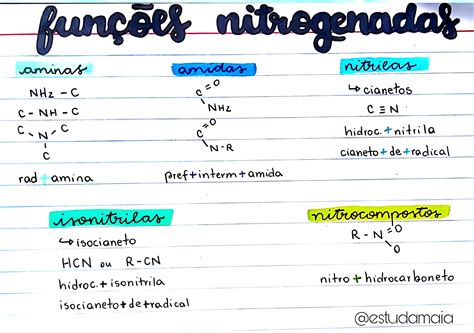 funções nitrogenadas
aminas
NH2 - C
C - NH - C
C - N - C
C
rad + amina
amidas
C = O
NH2
C = O
N - R
pref + interm + amida
nitrilas
↳ cianetos
C ≡ N
hidroc. + nitrila
cianeto + de + radical
isonitrilas
↳ isocianeto
HCN ou R - CN
hidroc. + isonitrila
isocianeto + de + radical
nitrocompostos
R - N = O
O
nitro + hidrocarboneto
@estudamaia